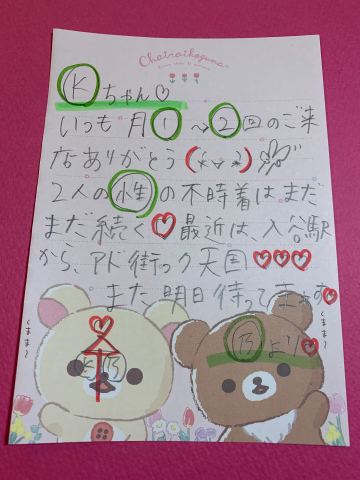 Chairoikoguma
Kちゃん♡
いつも月1〜2回のご来
店ありがとう
2人の
の不時着はまだ
まだ続く♡最近は、入谷駅
から、アド街ック天国♡♡♡
また明日待ってます♡
くまま〜
K 乃
乃より♡
くまま〜